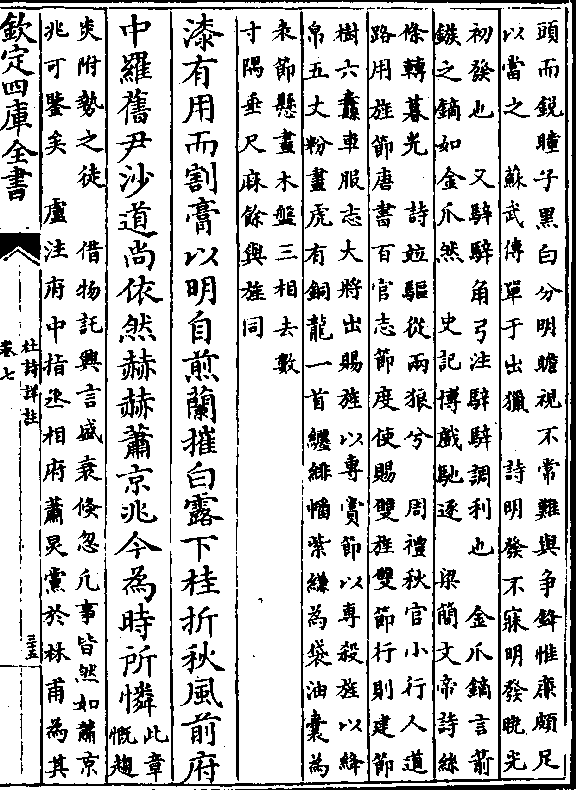 頭而銳瞳子黑白分明瞻視不常難與爭鋒惟廉頗足
以當之　蘇武傳單于出獵　詩明發不寐明發晚光
初發也　又騂騂角弓注騂騂調利也　金爪鏑言箭
鏃之鏑如金爪然　史記博戲馳逐　梁簡文帝詩絲
條轉暮光　詩竝驅從兩狼兮　周禮秋官小行人道
路用旌節唐書百官志節度使賜雙旌雙節行則建節
樹六纛車服志大將出賜旌以專賞節以專殺旌以絳
帛五丈粉畫虎有銅龍一首纏緋幡紫縑為袋油囊為
表節懸畫木盤三相去數
寸隅垂尺麻餘與旌同
漆有用而割膏以明自煎蘭摧白露下桂折秋風前府
中羅舊尹沙道尚依然赫赫蕭京兆今為時所憐
此章
慨趨
炎附勢之徒　借物託興言盛衰倐忽凡事皆然如蕭京
兆可鑒矣　盧注府中指丞相府蕭炅黨於林甫為其
欽定四庫全書
杜詩詳註
卷七
三五